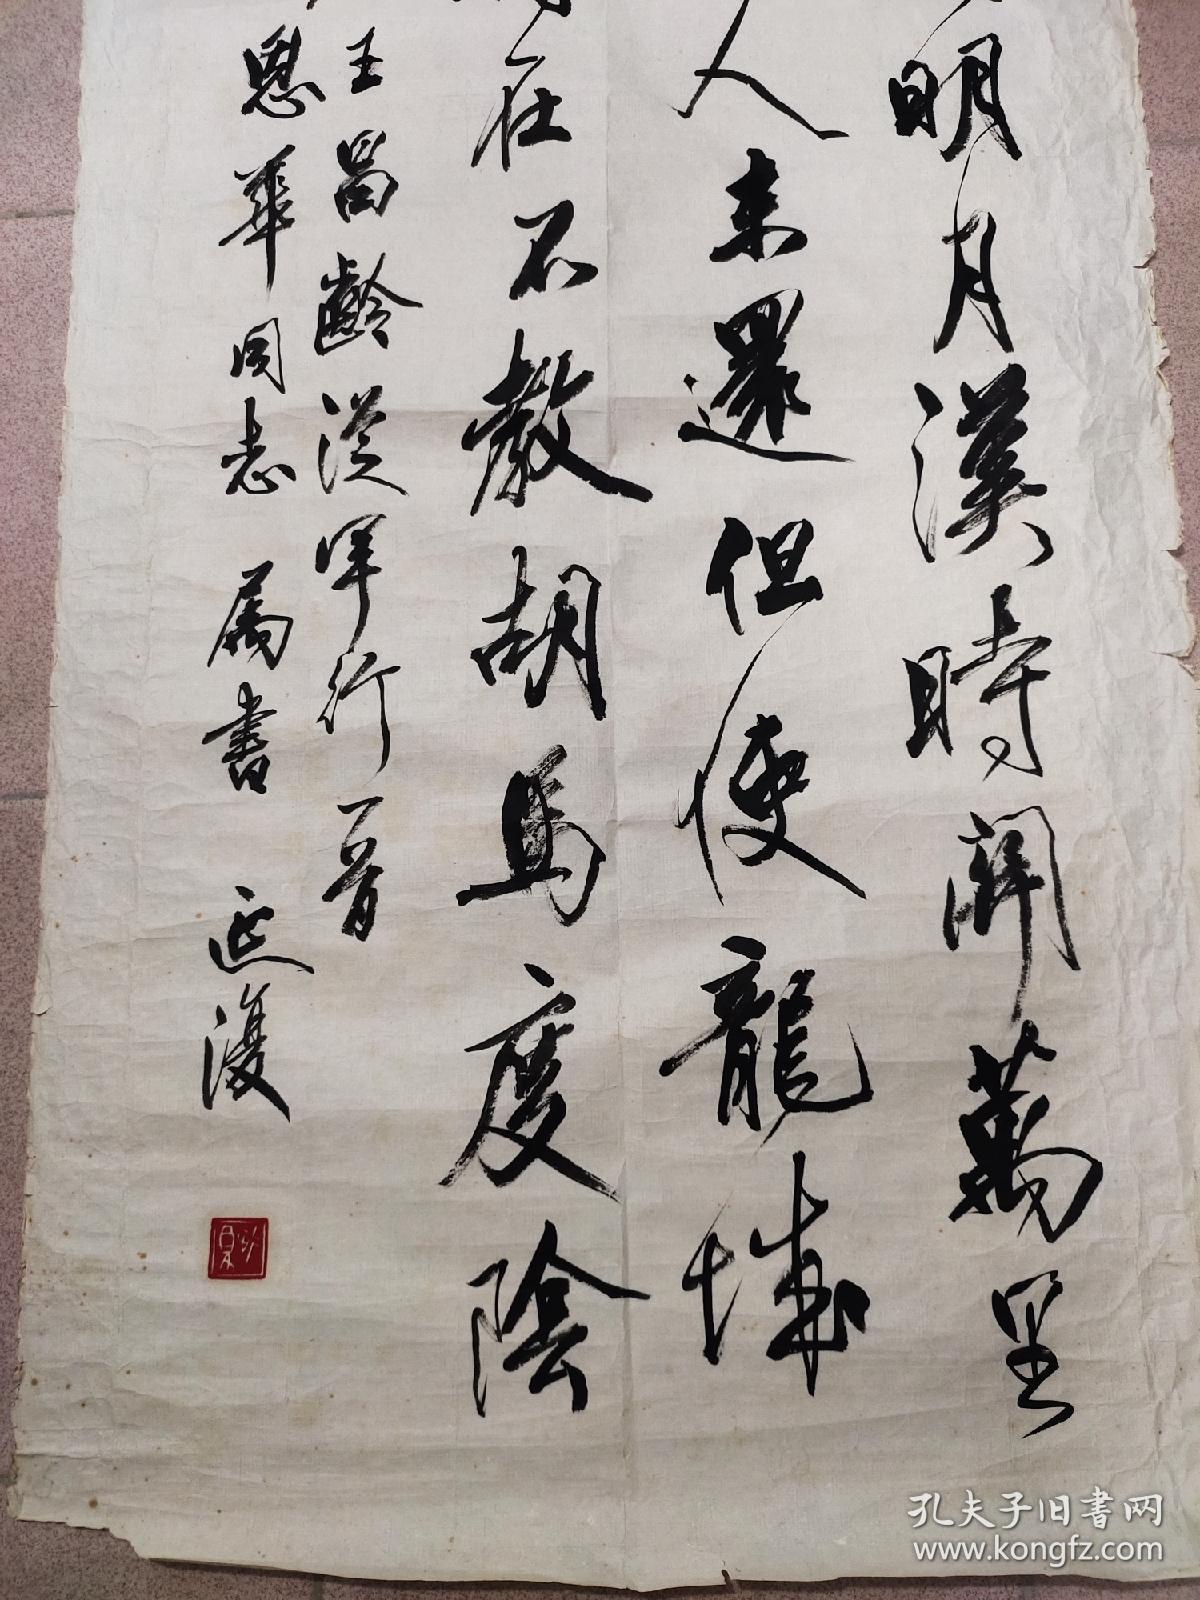 明月漢時關萬里
人未還但使龍城
在不教胡馬度陰
王昌齡從軍行一首
恩華同志屬書 延復
孔夫子旧书网
www.kongfz.com